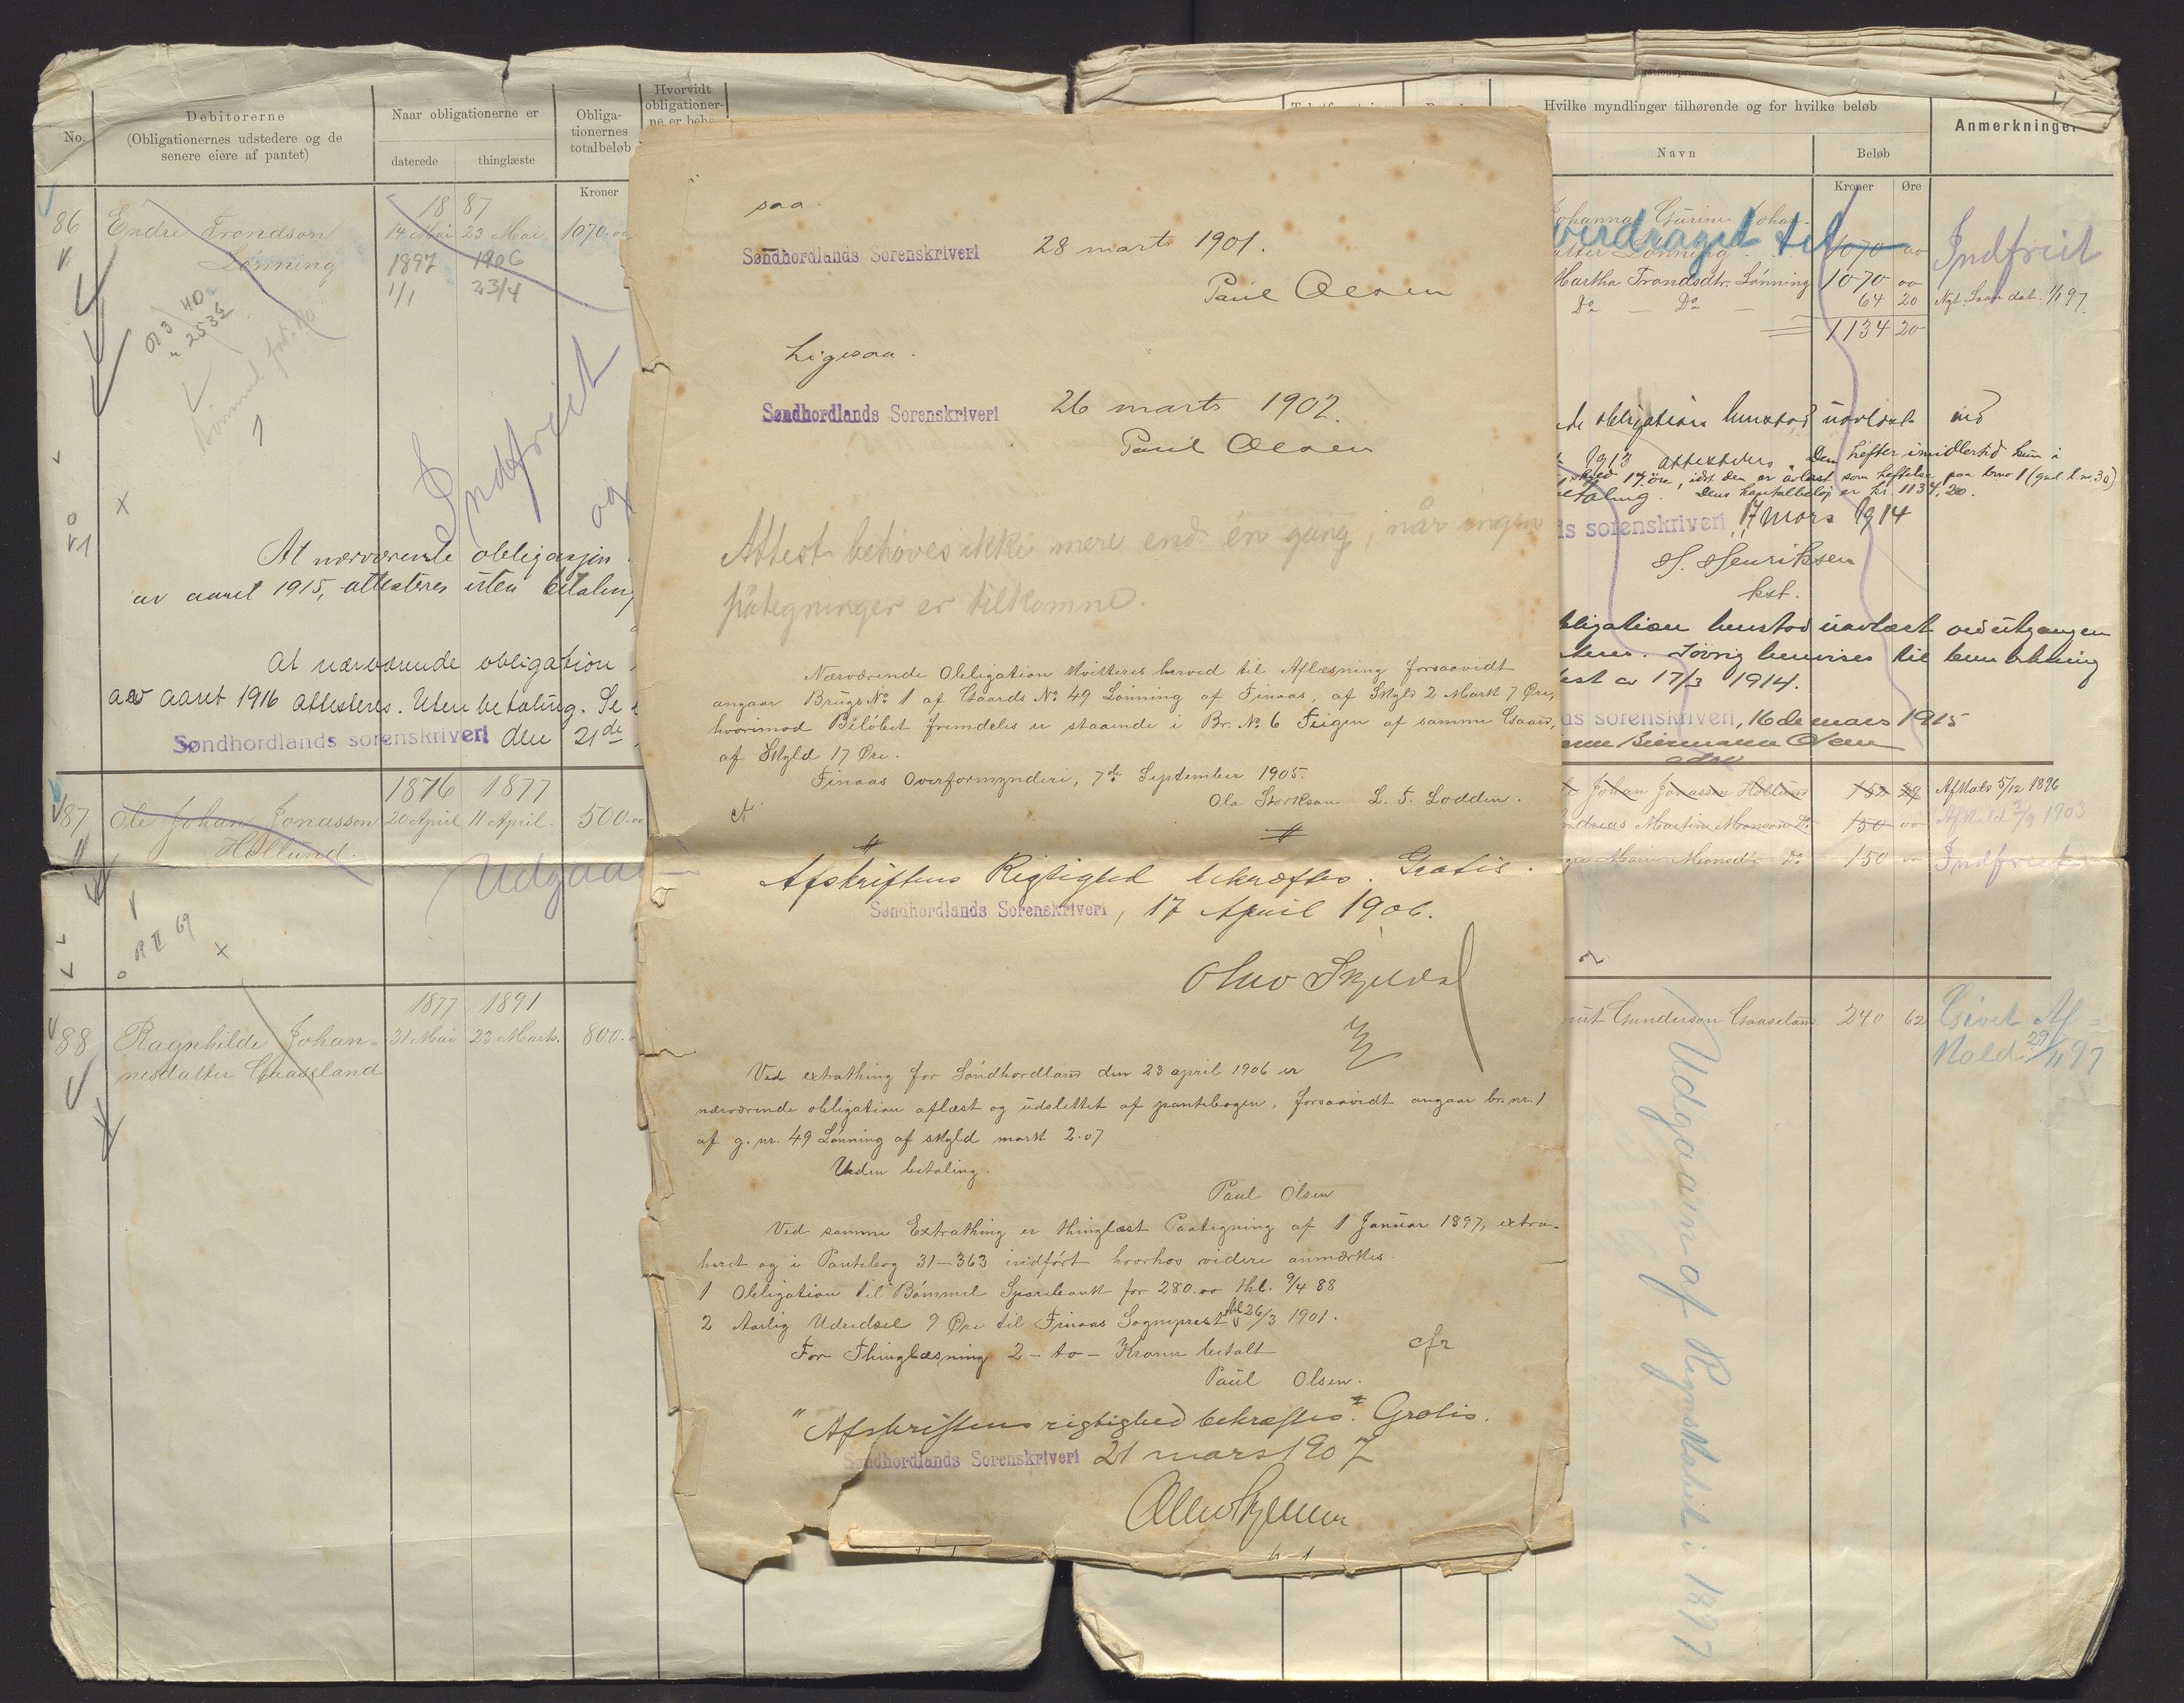 No.
Debitorerne
(Obligationernes udstedere og de
senere eiere af pantet)
Naar obligationerne er
daterede
thinglæste
Obliga-
tionernes
totalbeløb
Kroner
Hvorvidt
obligationer-
ne er
86
Endre Trondson
Lønning
18 87
14 Mai 23 Mai
1897 1906
1/1 23/4
1070.00
Indfriet
At nærværende obligasjon
av aaret 1915, attesteres uten betaling
At nærværende obligation
av aaret 1916 attesteres. Uten betaling. Se
Søndhordlands sorenskriveri den 21de
87
Ole Johan Jonasson
Hollund.
1876 1877
20 April 11 April.
500.00
Udgaar
88
Ragnhilde Johan-
nesdatter Gaaseland
1877 1891
31 Mai 23 Marts.
800.
saa.
Søndhordlands Sorenskriveri 28 marts 1901.
Paul Olsen
Ligesaa.
Søndhordlands Sorenskriveri 26 marts 1902.
Paul Olsen
Attest behøves ikke mere end én gang, når ingen
påtegninger er tilkomne.
Nærværende Obligation kvitteres herved til Aflæsning forsaavidt
angaar Brugs No 1 af Gaards No 49 Lønning af Finaas, af Skyld 2 Mark 7 Øre,
hvorimod Beløbet fremdeles er staaende i Br. No 6 Teigen af samme Gaard,
af Skyld 17 Øre.
Finaas Overformynderi, 7de September 1905.
Ola Storkson L. T. Lodden.
Afskriftens Rigtighed bekræftes. Gratis.
Søndhordlands Sorenskriveri, 17 April 1906.
Olav Skjeldal
Ved extrathing for Søndhordland den 23 april 1906 er
nærværende obligation aflæst og udslettet af pantebogen, forsaavidt angaar br. nr. 1
af g. nr. 49 Lønning af skyld mark 2.07
Uden betaling.
Paul Olsen
Ved samme Extrathing er thinglæst Paategning af 1 Januar 1897, extra-
heret og i Pantebog 31-363 indført hvorhos videre anmærkes.
1 Obligation til Bømmel Sparebank for 280.00 thl. 9/4 88
2 Aarlig Udredsel 9 Øre til Finaas Sogneprest thl 26/3 1901.
For Thinglæsning 2 - to - Kroner betalt
cfr
Paul Olsen.
"Afskriftens rigtighed bekræftes." Gratis.
Søndhordlands Sorenskriveri 21 mars 1907
Hvilke myndlinger tilhørende og for hvilke beløb
Navn
Beløb
Kroner
Øre
Anmerkninger
Johanna Gurine Johan-
verdraget til
1070 00
Indfriet
Martha Trondsdtr. Lønning 1070 00
Do — Do — 64 20 Nyt Laan dat. 1/1 97.
1134 20
obligation henstod uavløst ved
1913 attesteres. Den hefter imidlertid kun i
skyld 17 øre, idet den er avløst som heftelse paa brno 1 (gml. l. no. 30)
betaling. Dens kapitalbeløp er kr 1134,20.
ds sorenskriveri, 17 Mars 1914
H. Henriksen
kst.
bligation henstod uavlæst ved utgangen
teres. Iøvrig henvises til bemerkning
est av 17/3 1914.
ds sorenskriveri, 16de mars 1915
Biermann Olsen
Johan Jonasson Hollund 152 29 Afkald 5/12 1896
Andreas Martin Monsen Do 150 00 Afkald 3/9 1903
Marie Monsdtr. Do 150 00 Indfriet
Knut Gunderson Gaaseland 240 62 Givet Af-
kald 29/11 97
Udgaar af Regnskabet i 1897